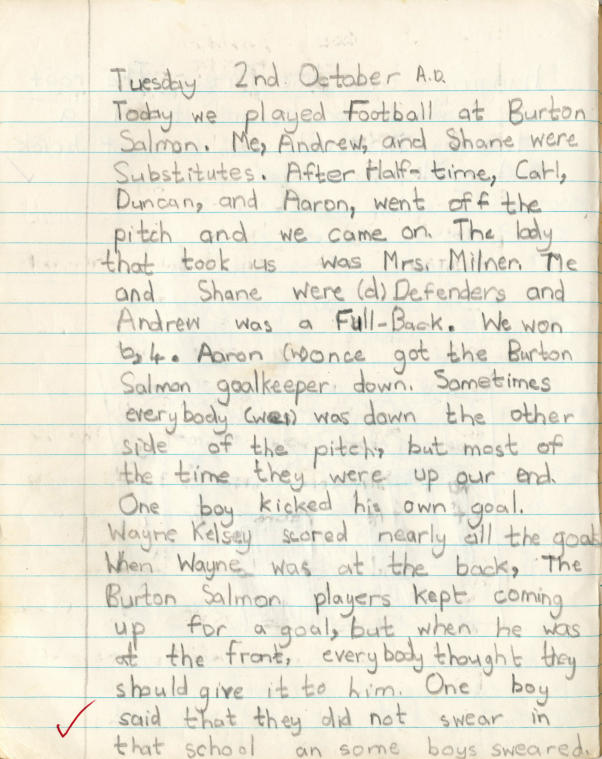 Tuesday 2nd October A.D.
Today we played Football at Burton
Salmon. Me, Andrew, and Shane were
Substitutes. After Half-time, Carl,
Duncan, and Aaron, went off the
pitch and we came on. The lady
that took us was Mrs. Milner. Me
and Shane were (d) Defenders and
Andrew was a Full-Back. We won
4. Aaron (wo)once got the Burton
Salmon goalkeeper down. Sometimes
everybody (wer) was down the other
side of the pitch, but most of
the time they were up our end.
One boy kicked his own goal.
Wayne Kelsey scored nearly all the goals
When Wayne was at the back, The
Burton Salmon players kept coming
up for a goal, but when he was
at the front, everybody thought they
should give it to him. One boy
said that they did not swear in
that school an some boys sweared.